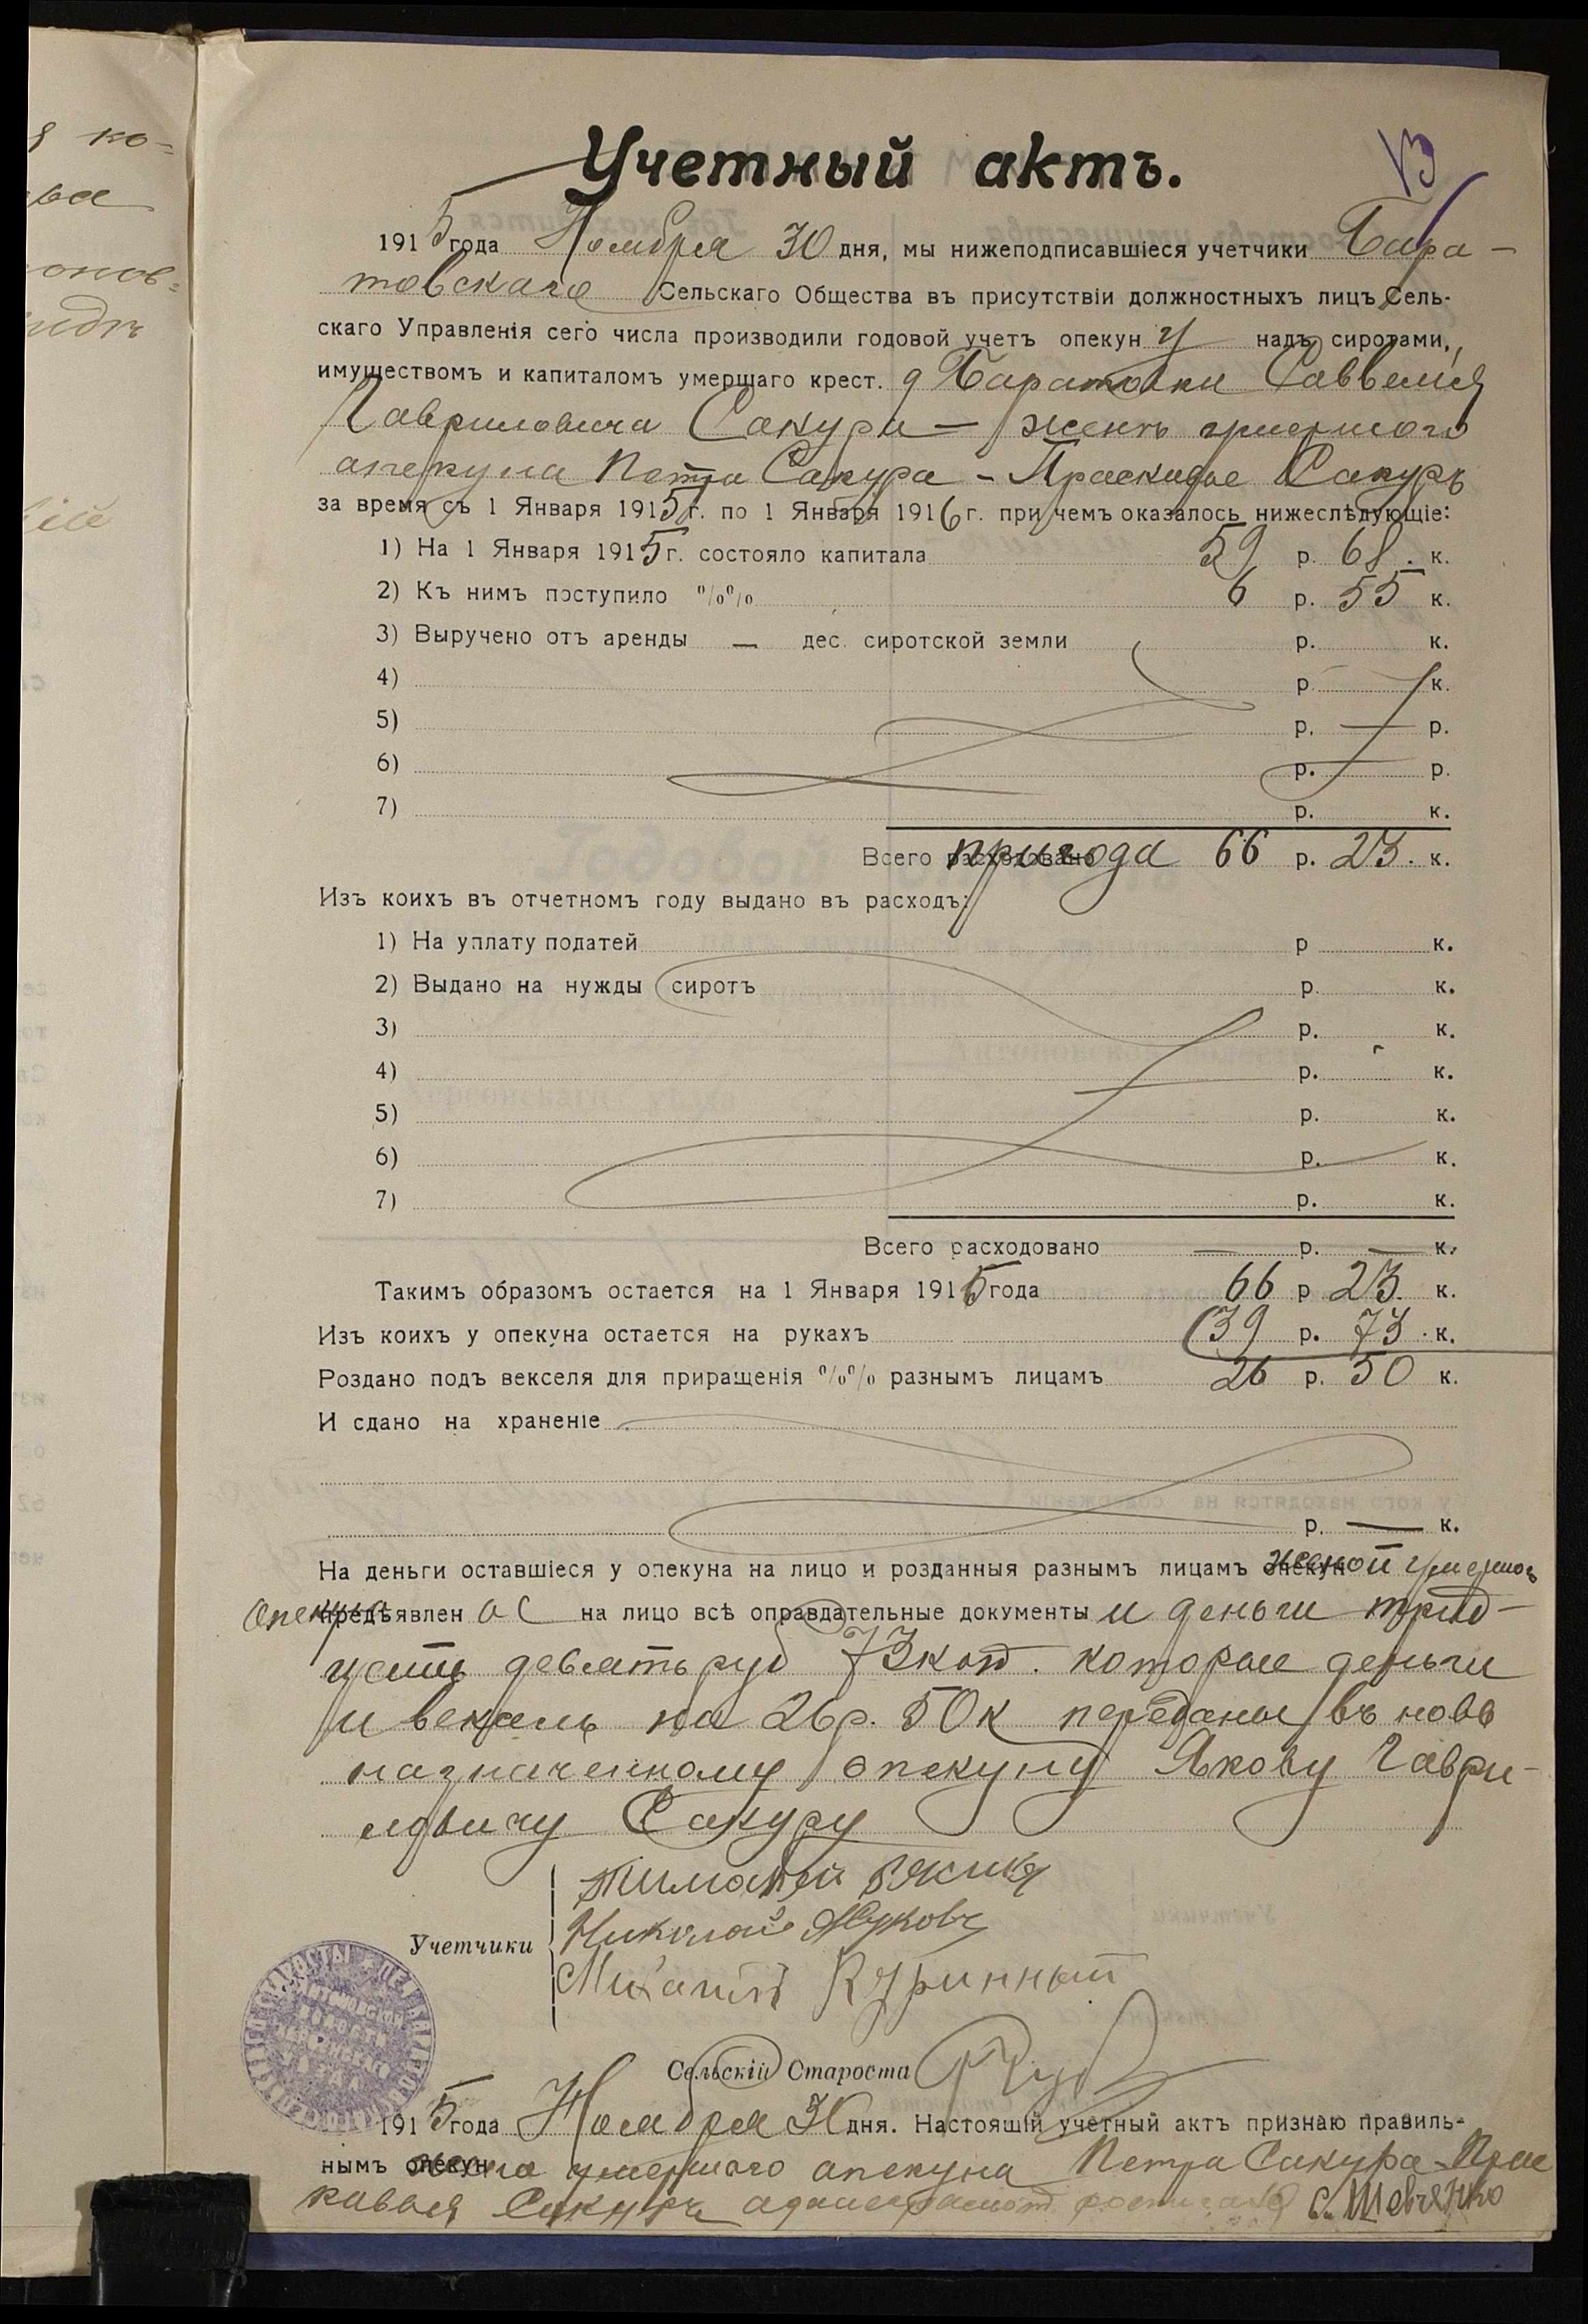 Учетный актъ.
1915 года Ноября 30 дня, мы нижеподписавшіеся учетчики Бара-
товскаго Сельскаго Общества въ присутствіи должностныхъ лицъ Сель-
скаго Управленія сего числа производили годовой учетъ опекуну надъ сиротами,
имуществомъ и капиталомъ умершаго крест. д Баратовки Савелія
Гавриловича Сакуры — женѣ умершого
опекуна Петра Сакура - Праскидѣе Сакуръ
за время съ 1 Января 1915 г. по 1 Января 1916 г. при чемъ оказалось нижеслѣдующіе:
1) На 1 Января 1915 г. состояло капитала 59 р. 68. к.
2) Къ нимъ поступило %% 6 р. 55 к.
3) Выручено отъ аренды — дес. сиротской земли р. к.
4) р. к.
5) р. — р.
6) р. р.
7) р. к.
Всего прихода 66 р. 23. к.
Изъ коихъ въ отчетномъ году выдано въ расходъ:
1) На уплату податей р к.
2) Выдано на нужды сиротъ р. к.
3) р. к.
4) р. к.
5) р. к.
6) р. к.
7) р. к.
Всего расходовано — р. — к.
Такимъ образомъ остается на 1 Января 1915 года 66 р 23. к.
Изъ коихъ у опекуна остается на рукахъ 39 р. 73. к.
Роздано подъ векселя для приращенія %% разнымъ лицамъ 26 р. 50 к.
И сдано на храненіе
р. — к.
На деньги оставшіеся у опекуна на лицо и розданныя разнымъ лицамъ женой умершог
опекуна предъявлен ы на лицо всѣ оправдательные документы и деньги трид-
цать девять руб 73 коп. которые деньги
и вексель на 26 р. 50 к переданы въ новь
назначенному опекуну Якову Гаври-
ловичу Сакуру
Учетчики
Николай Жуковъ
Михаилъ Куринный
Сельскій Староста
1915 года Ноября 30 дня. Настоящій учетный актъ признаю правиль-
нымъ жена умершого опекуна Петра Сакура Прас
ковья Сакуръ С. Шевченко